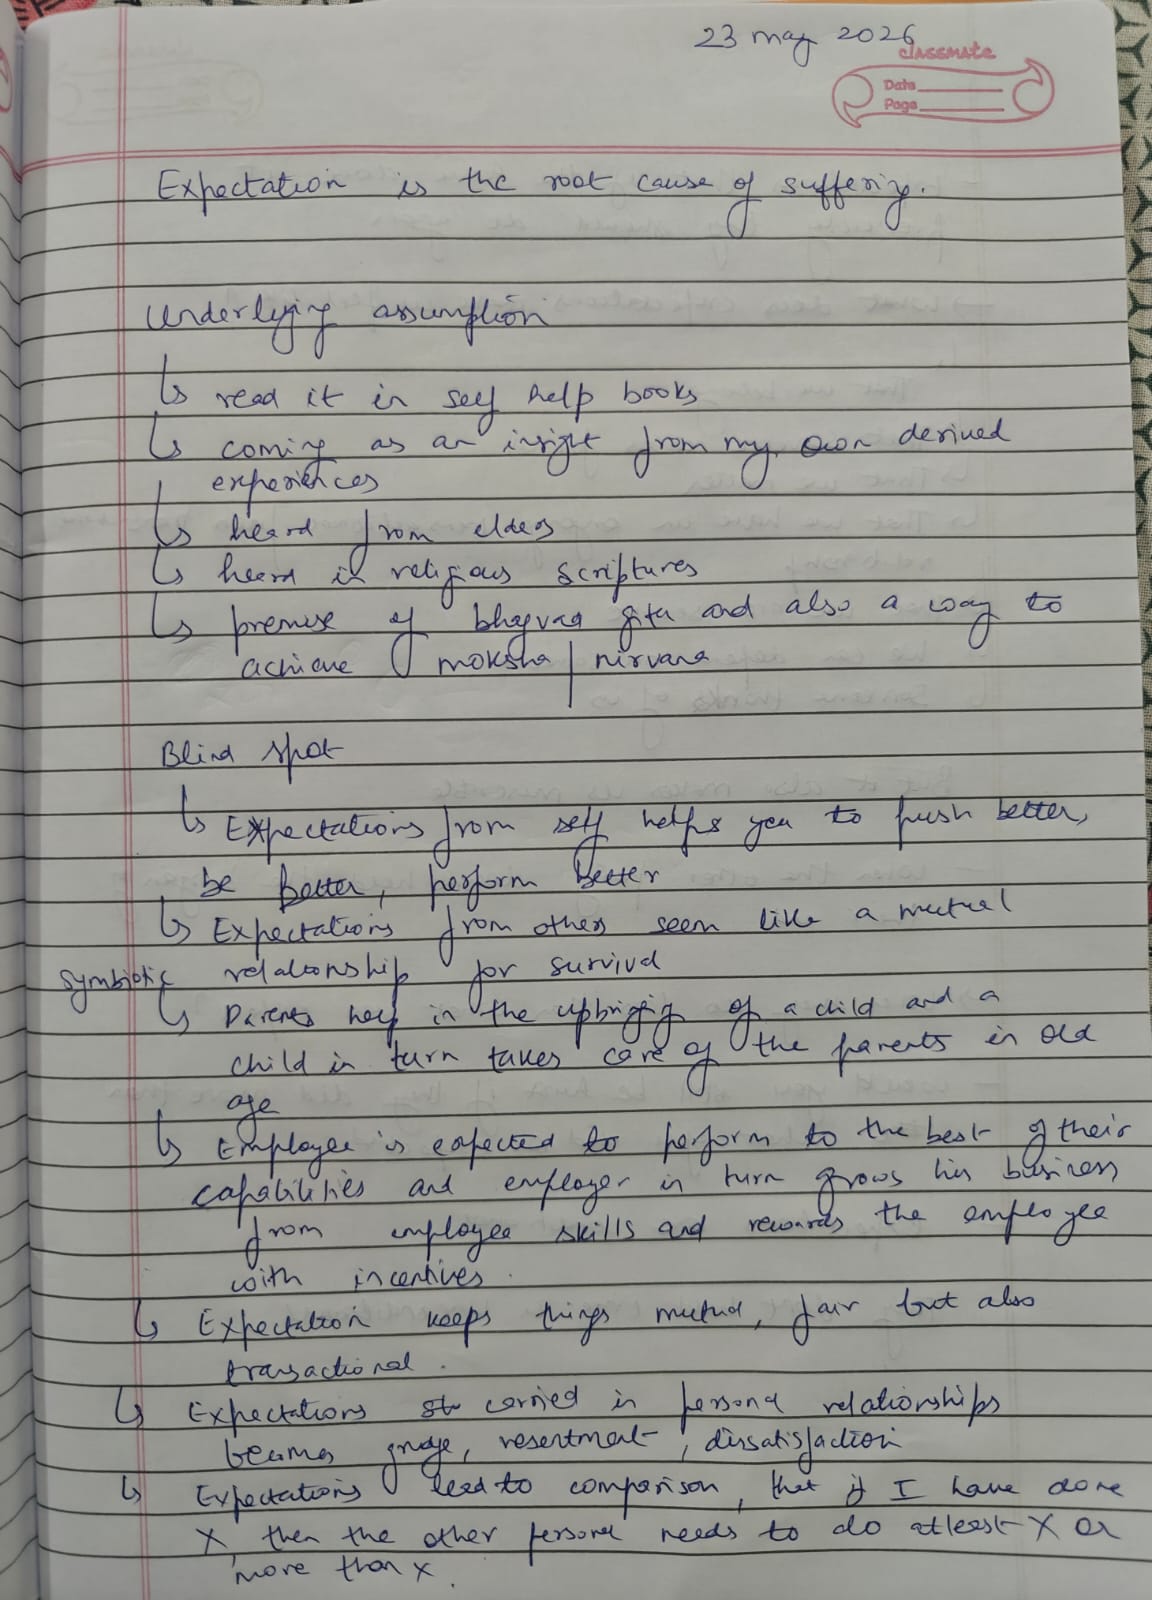 23 may 2026
classmate
Date
Page
Expectation is the root cause of suffering.
Underlying assumption
↳ read it in self help books
↳ coming as an insight from my own derived
experiences
↳ heard from elders
↳ heard in religious scriptures
↳ premise of bhagvad gita and also a way to
achieve moksha / nirvana
Blind spot
↳ Expectations from self helps you to push better,
be better, perform better
↳ Expectations from others seem like a mutual
symbiotic relationship for survival
↳ Parents help in the upbringing of a child and a
child in turn takes care of the parents in old
age
↳ Employee is expected to perform to the best of their
capabilities and employer in turn grows his business
from employee skills and rewards the employee
with incentives.
↳ Expectation keeps things mutual, fair but also
transactional.
↳ Expectations carried in personal relationships
becomes grudge, resentment, dissatisfaction
↳ Expectations lead to comparison, that if I have done
X, then the other personal needs to do atleast X or
more than X.